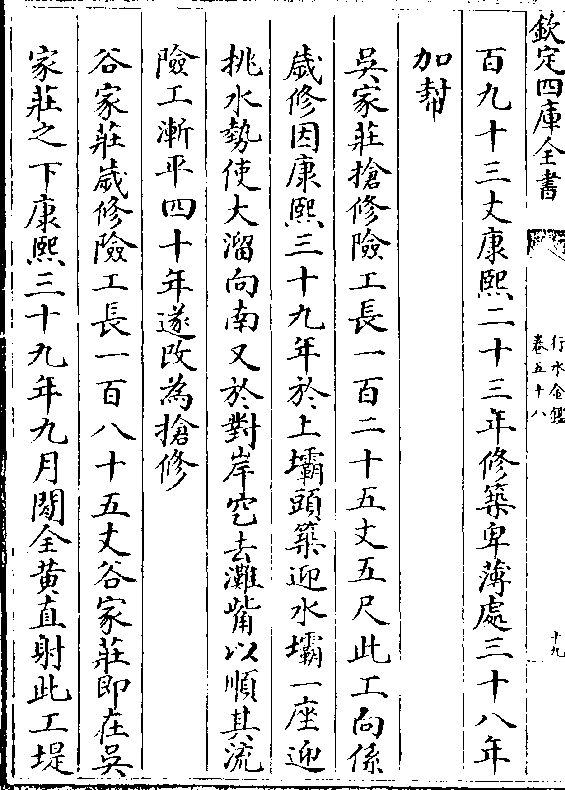 欽定四庫全書
行水金鑑
卷五十八
十九
百九十三丈康熙二十三年修築卑薄處三十八年
加幇
吳家莊搶修險工長一百二十五丈五尺此工向係
歲修因康熙三十九年於上壩頭築迎水壩一座迎
挑水勢使大溜向南又於對岸挖去灘嘴以順其流
險工漸平四十年遂改為搶修
谷家莊歲修險工長一百八十五丈谷家莊即在吳
家莊之下康熙三十九年九月間全黄直射此工堤